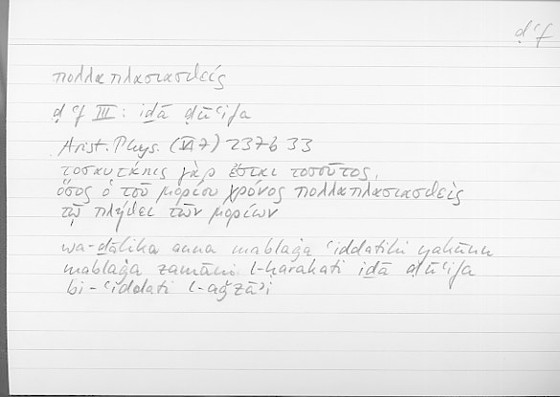 ḍʿf
πολλαπλασιασθείς
ḍʿf III: iḏā ḍūʿifa
Arist. Phys. (VI 7) 237b 33
τοσαυτάκις γὰρ ἔσται τοσοῦτος,
ὅσος ὁ τοῦ μορίου χρόνος πολλαπλασιασθεὶς
τῷ πλήθει τῶν μορίων
wa-ḏālika anna mablaġa ʿiddatihī yakūnu
mablaġa zamāni l-ḥarakati iḏā ḍūʿifa
bi-ʿiddati l-aǧzāʾi